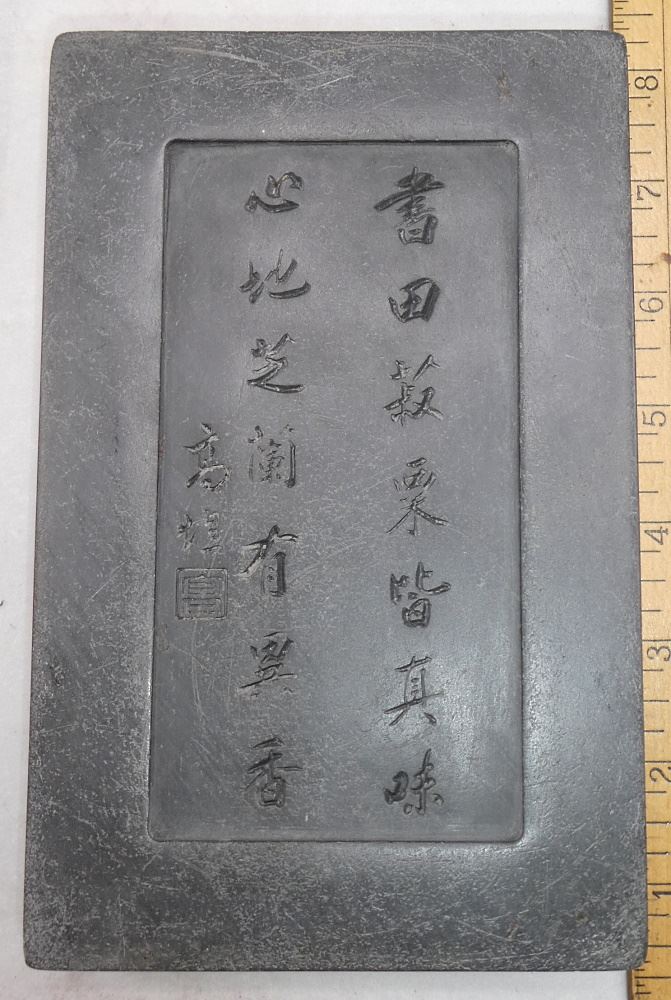 書田菽粟皆真味
心地芝蘭有異香
高
8
7
6
5
4
3
2
1